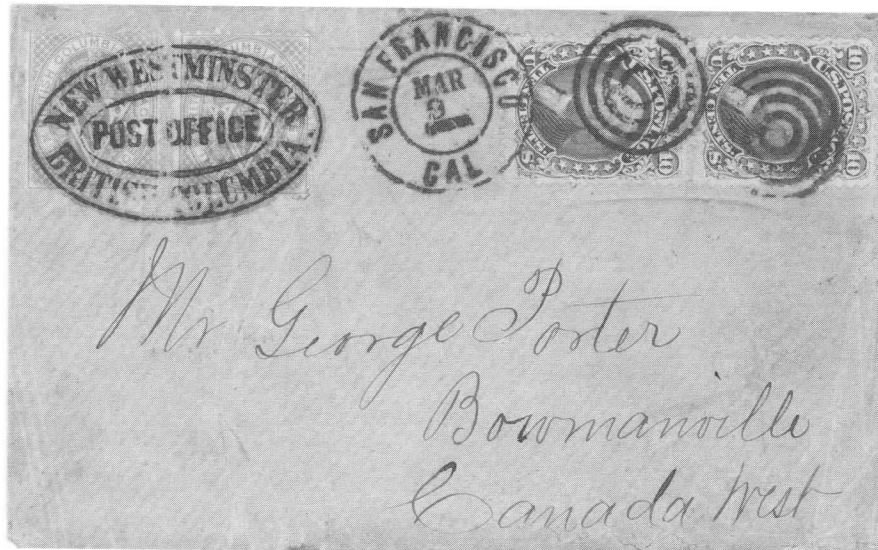 NEW WESTMINSTER
POST OFFICE
BRITISH COLUMBIA.
SAN FRANCISCO
MAR
CAL
U.S. POSTAGE
10
10
10
10
Mr George Porter
Bowmanville
Canada West